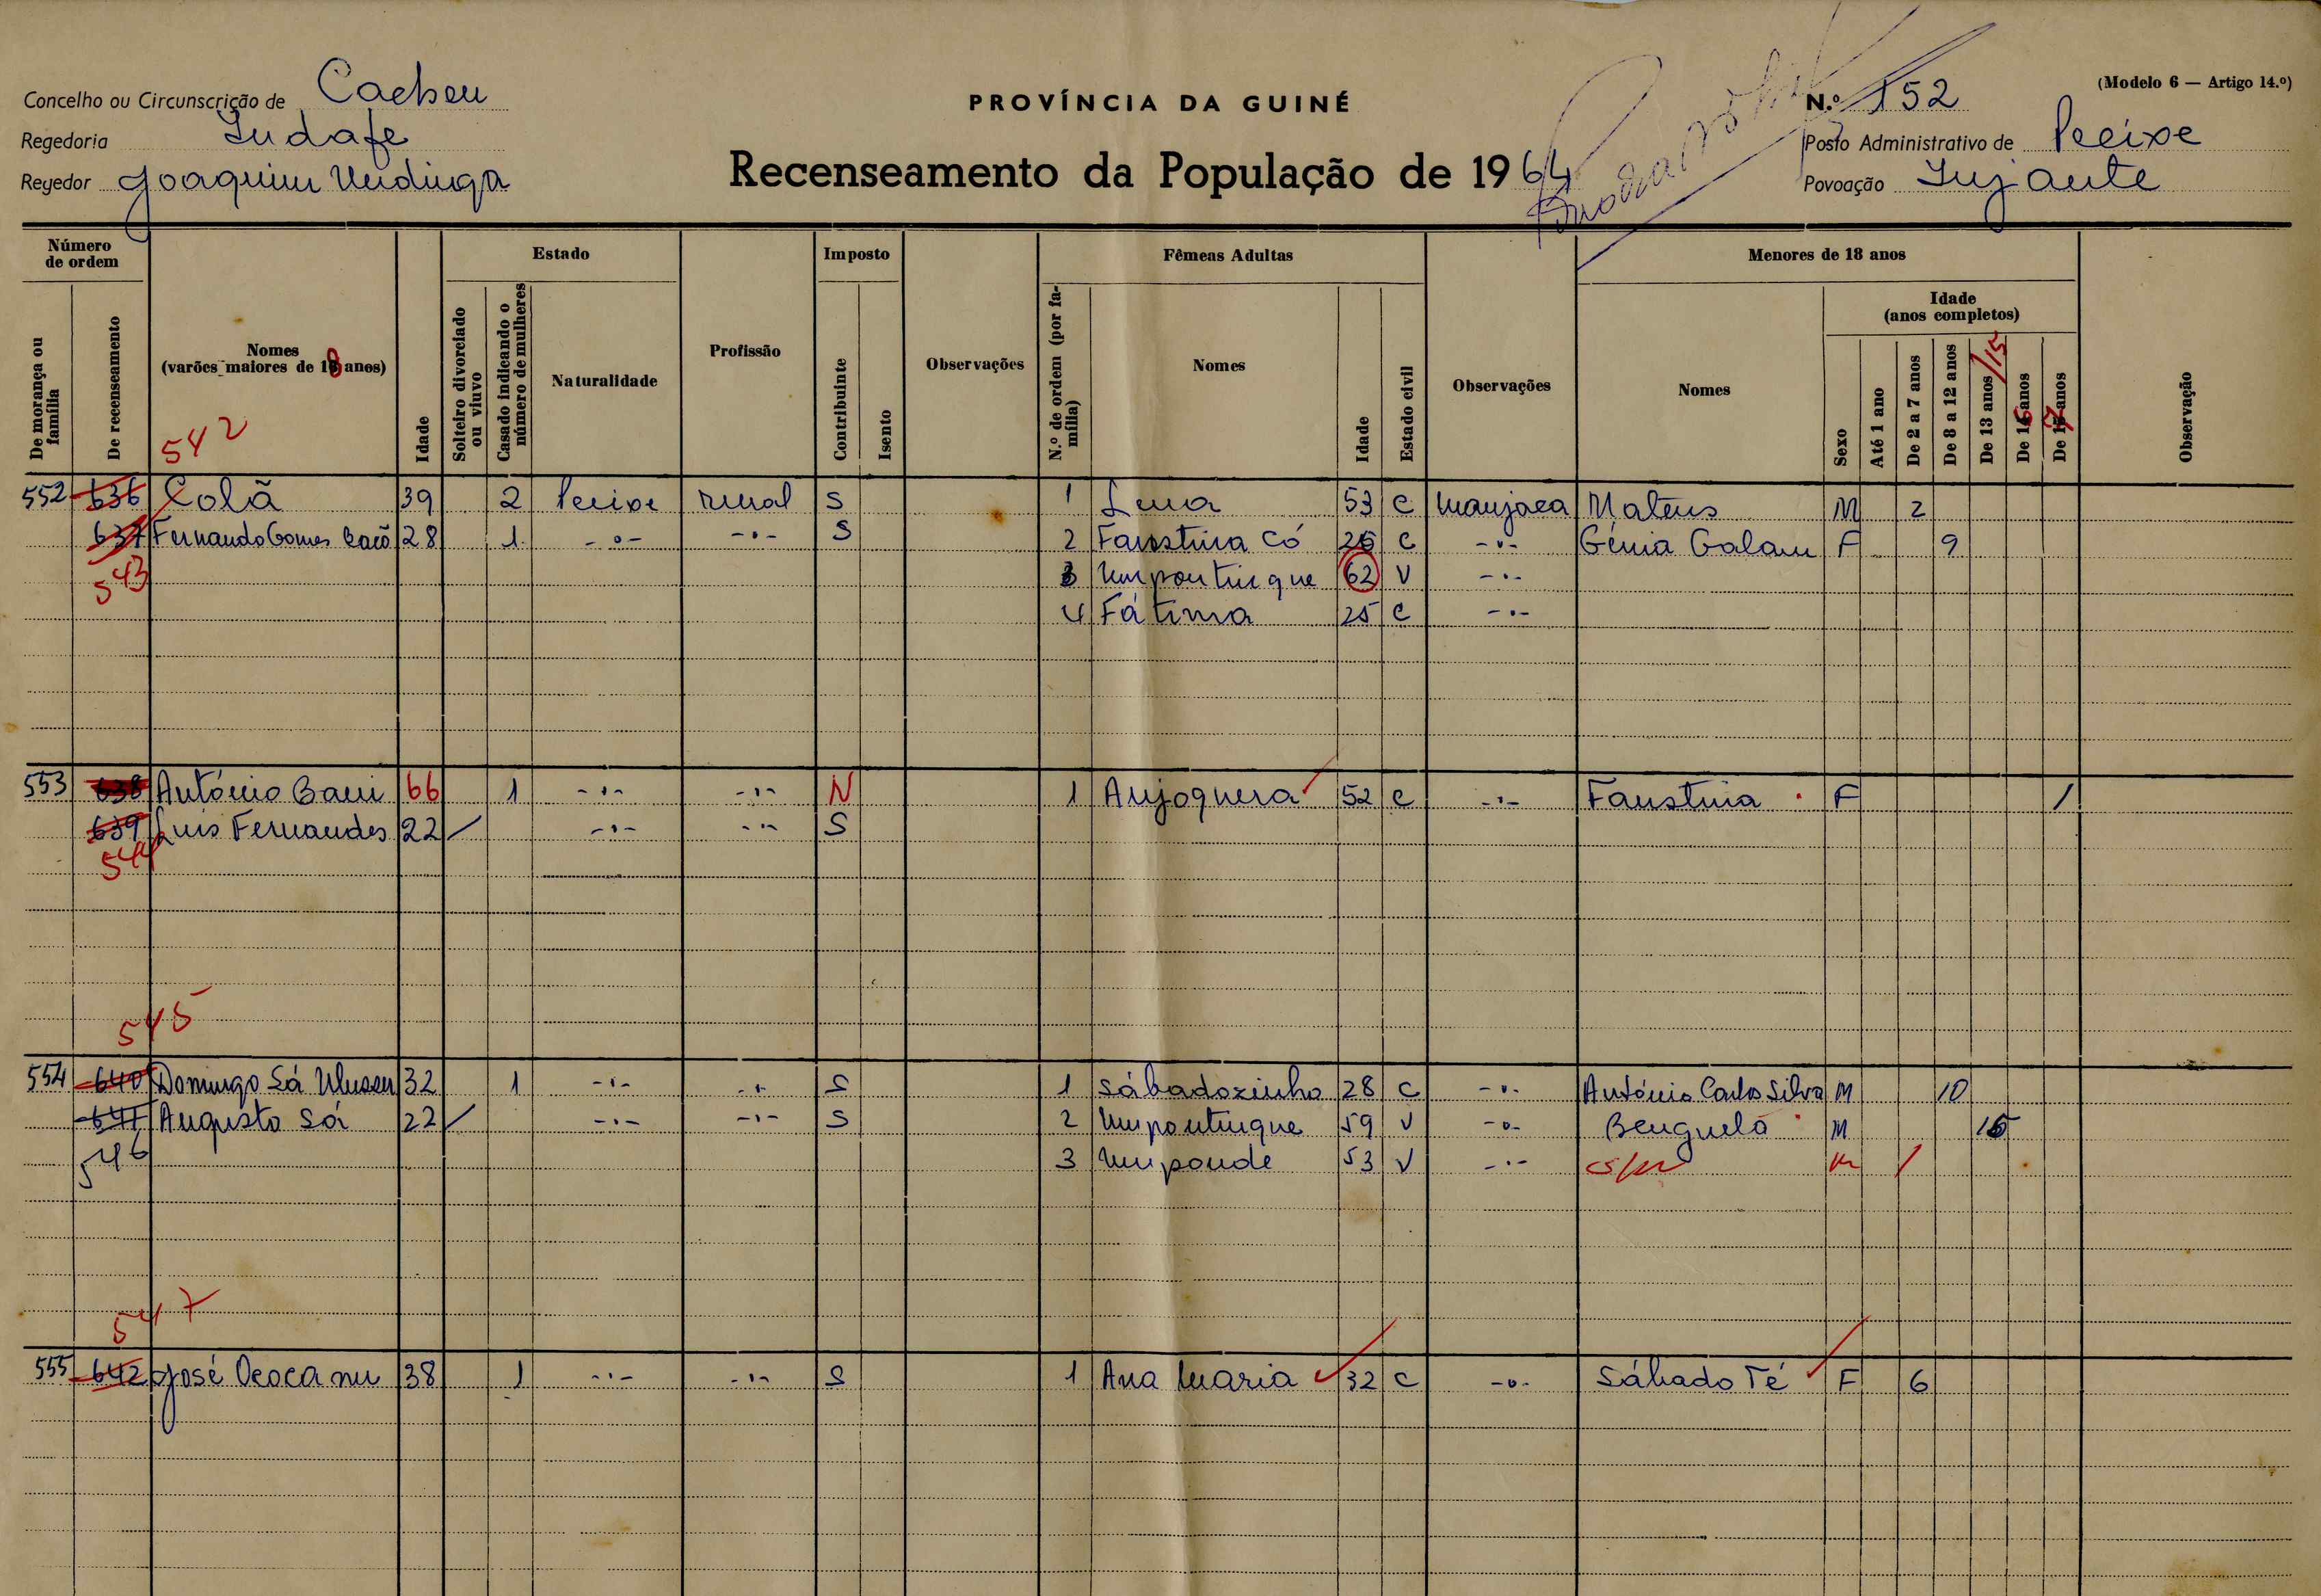 Concelho ou Circunscrição de Cacheu
Regedoria Indafe
Regedor Joaquim Undinga
PROVÍNCIA DA GUINÉ
Recenseamento da População de 1964
(Modelo 6 — Artigo 14.º)
N.º 152
Posto Administrativo de Pecixe
Povoação Injante
Número de ordem
De morança ou família
De recenseamento
Nomes (varões maiores de 18 anos)
Idade
Estado
Solteiro divorciado ou viuvo
Casado indicando o número de mulheres
Naturalidade
Profissão
Imposto
Contribuinte
Isento
Observações
Fêmeas Adultas
N.º de ordem (por família)
Nomes
Idade
Estado civil
Observações
Menores de 18 anos
Nomes
Idade (anos completos)
Sexo
Até 1 ano
De 2 a 7 anos
De 8 a 12 anos
De 13 anos /15
De 16 anos
De 17 anos
Observação
542
552 636 Colã 39 2 Pecixe rural S 1 Lena 53 C manjaca Mateus M 2
637 Fernando Gomes Cacô 28 1 -o- -o- S 2 Faustina Có 26 C -o- Génia Galam F 9
543 3 Umpontinque 62 V -o-
4 Fátima 25 C -o-
553 638 António Bani 66 1 -o- -o- N 1 Anjoquera 52 C -o- Faustina F /
639 Luis Fernandes 22 / -o- -o- S
544
545
554 640 Domingo Sá 32 1 -o- -o- S 1 Sábadozinho 28 C -o- António Carlos Silva M 10
641 Augusto Sá 22 / -o- -o- S 2 Umpontinque 59 V -o- Benguela M 15
546 3 Umponde 53 V -o- s/n M /
547
555 642 José 38 1 -o- -o- S 1 Ana Maria 32 C -o- Sábado Té F 6